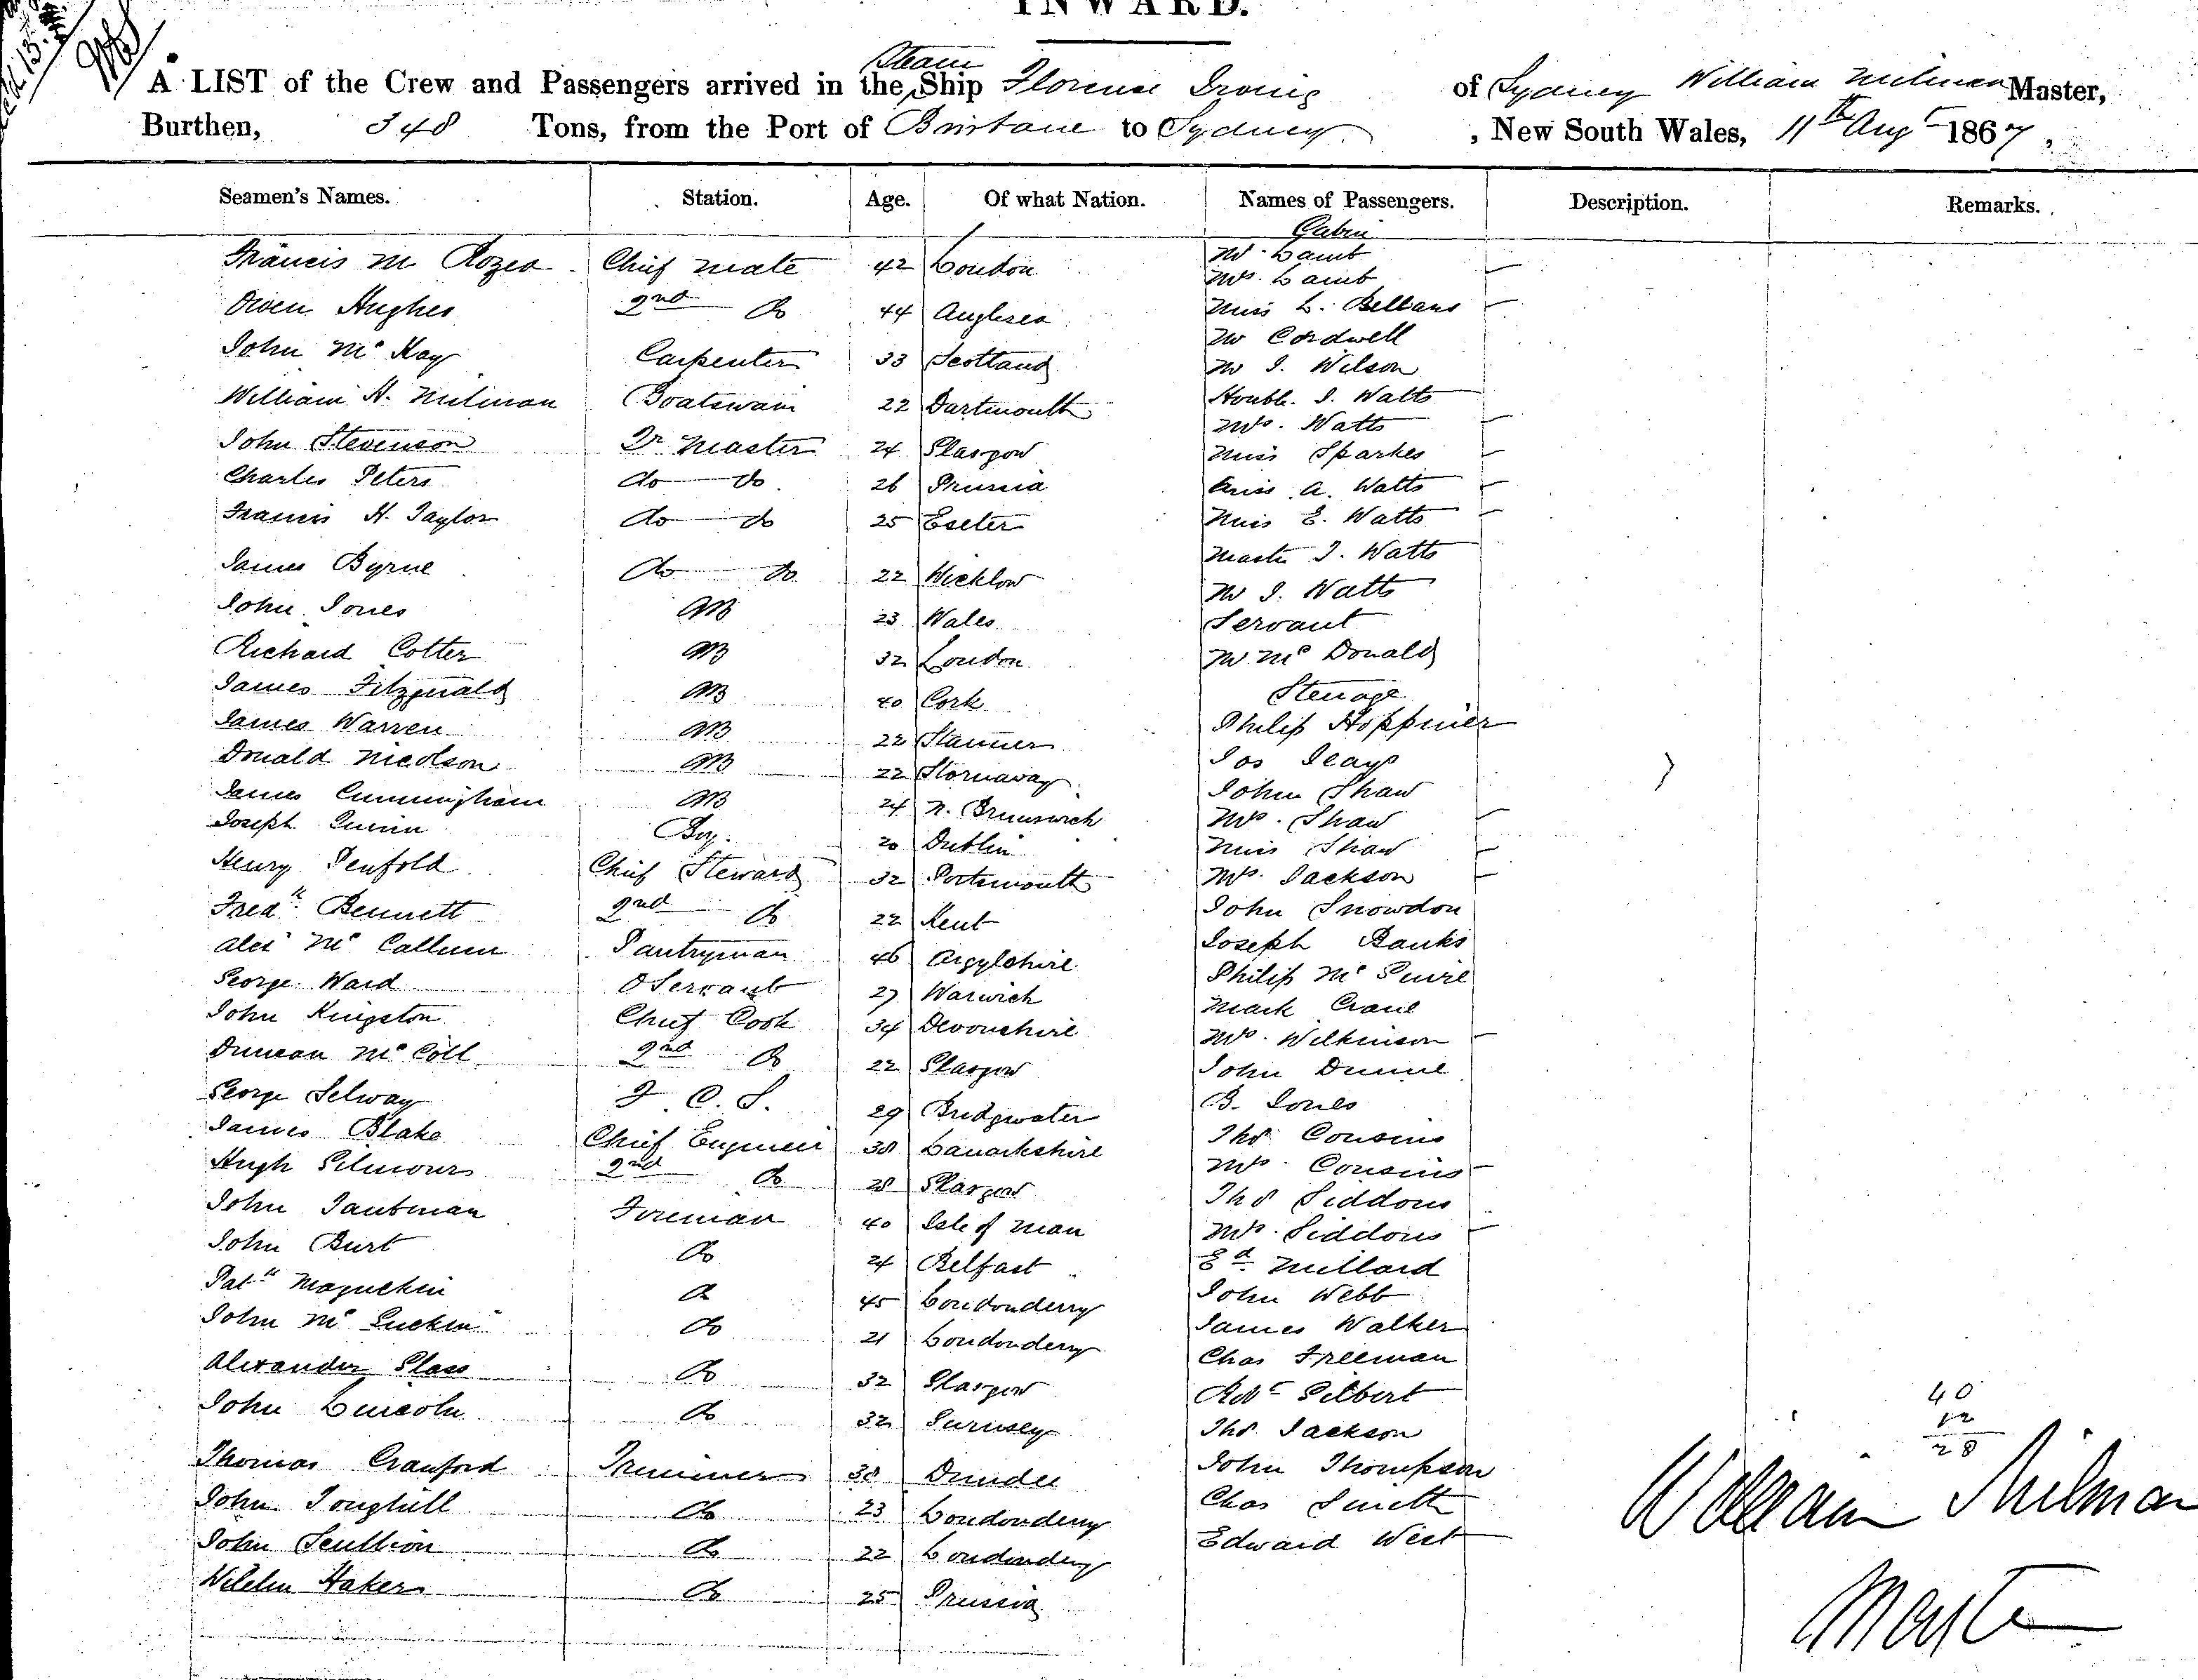 INWARD.
A LIST of the Crew and Passengers arrived in the Steam Ship Florence Irving of Sydney William Milman Master,
Burthen, 348 Tons, from the Port of Brisbane to Sydney , New South Wales, 11th Augt 1867,
Seamen's Names. Station. Age. Of what Nation. Names of Passengers. Description. Remarks.
Cabin
Francis M Rozea Chief Mate 42 London Mr Lamb
Mrs Lamb
Owen Hughes 2nd Do 44 Anglesea Miss L.
Mr Cordwell
John Mc Kay Carpenter 33 Scotland Mr J. Wilson
William H. Milman Boatswain 22 Dartmouth Honble. J. Watts
Mrs. Watts
John Stevenson Qr Master 24 Glasgow Miss Sparkes
Charles Peters do do 26 Prussia Miss A. Watts
Francis H. Taylor do do 25 Exeter Miss E. Watts
Master J. Watts
James Byrne do do 22 Wicklow Mr J. Watts
John Jones AB 23 Wales Servant
Richard Cotter AB 32 London Mr Mc Donald
James Fitzgerald AB 40 Cork Steerage
James Warren AB 22 Philip
Donald Nicolson AB 22 Stornaway Jos
James Cunningham AB 24 N. Brunswick John Shaw
Mrs. Shaw
Joseph Quinn Boy. 20 Dublin Miss Shaw
Henry Penfold Chief Steward 32 Portsmouth Mrs. Jackson
Fredk Bennett 2nd Do 22 Kent John Snowdon
Alex Mc Callum Pantryman 46 Argylshire Joseph Banks
George Ward Servant 27 Warwick Philip Mc
John Kingston Chief Cook 34 Devonshire Mark Crane
Mrs. Wilkinson
Duncan Mc Coll 2nd Do 22 Glasgow John Dunne
George Selway F. C. S. 29 Bridgwater B. Jones
James Blake Chief Engineer 38 Lanarkshire Thos Cousins
Hugh Gilmour 2nd Do 28 Glasgow Mrs. Cousins
Thos Siddons
John Taubman Fireman 40 Isle of Man Mrs. Siddons
John Burt Do 24 Belfast Ed Millard
Patk Do 45 Londonderry John Webb
John Mc Do 21 Londonderry James Walker
Chas Freeman
Alexander Glass Do 32 Glasgow Robt Gilbert
John Lincoln Do 32 Gurnsey Thos Jackson
Thomas Crawford Trimmer 38 Dundee John Thompson
John Toughill Do 23 Londonderry Chas Smith
John Scullion Do 22 Londonderry Edward West
Wilelm Haker Do 25 Prussia
40
12
28
William Milman
Master